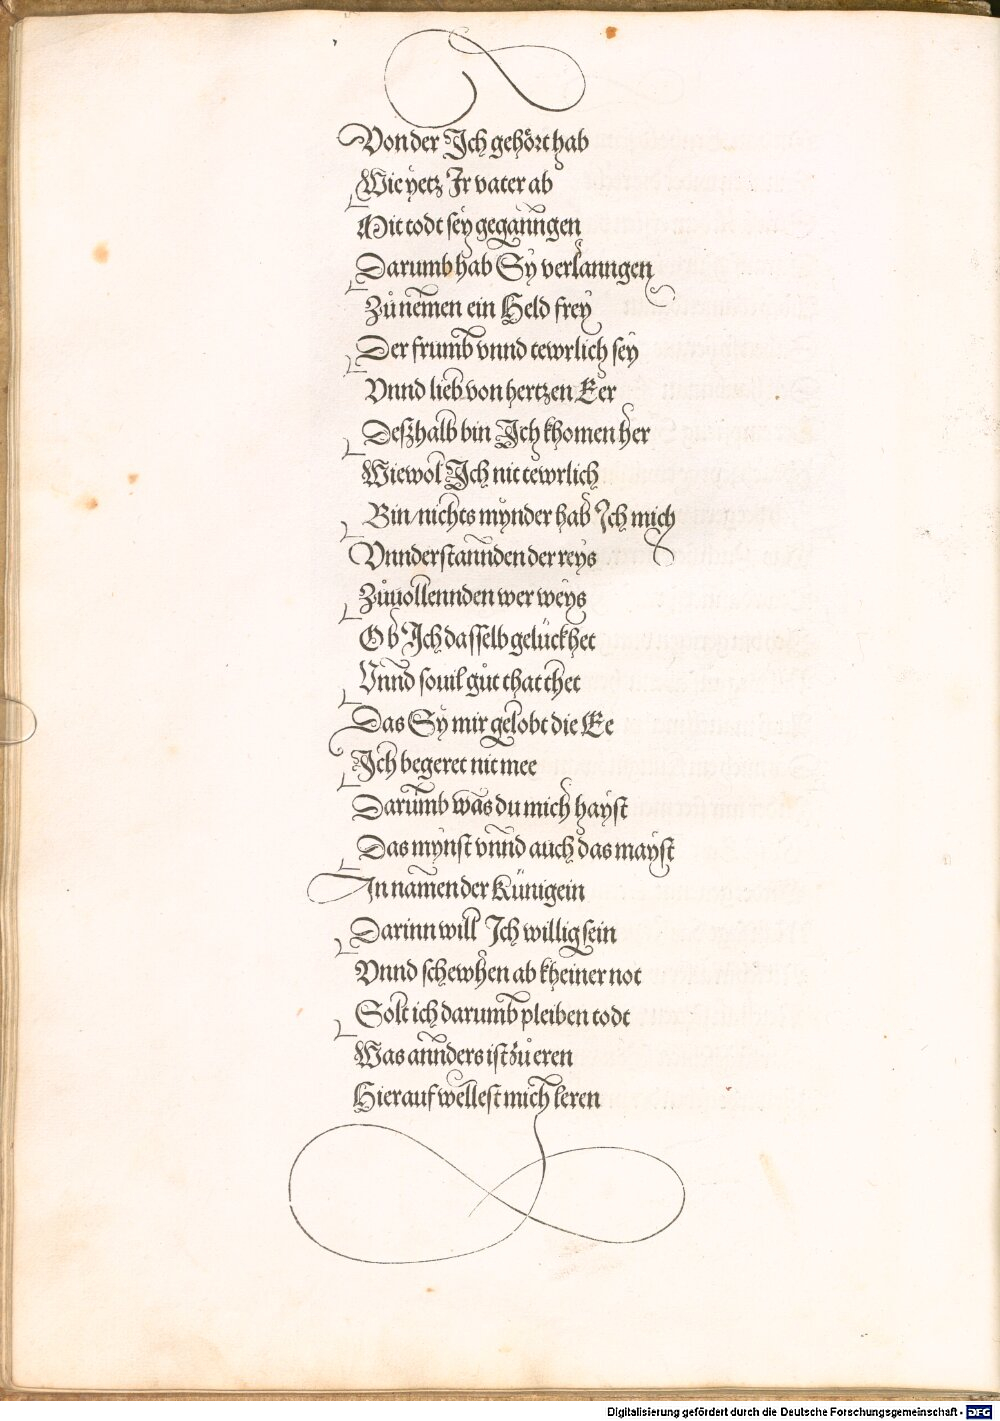 Von der Ich gehört hab
Wie yetz Ir vater ab
Mit todt sey geganngen
Darumb hab Sy verlanngen
Zů nemen ein Held frey
Der frumb vnnd tewrlich sey
Vnnd lieb von hertzen Eer
Deßhalb bin Ich khomen her
Wiewol Ich nit tewrlich
Bin/nichts mynder hab Ich mich
Vnnderstannden der reys
Zůuollennden wer weys
Ob Ich dasselb gelückhet
Vnnd souil gůt that thet
Das Sy mir gelobt die Ee
Ich begeret nit mee
Darumb was du mich hayst
Das mynst vnnd auch das mayst
In namen der Künigein
Darinn will Ich willig sein
Vnnd schewhen ab kheiner not
Solt ich darumb pleiben todt
Was annders ist zů eren
Hierauf wellest mich leren
Digitalisierung gefördert durch die Deutsche Forschungsgemeinschaft - DFG